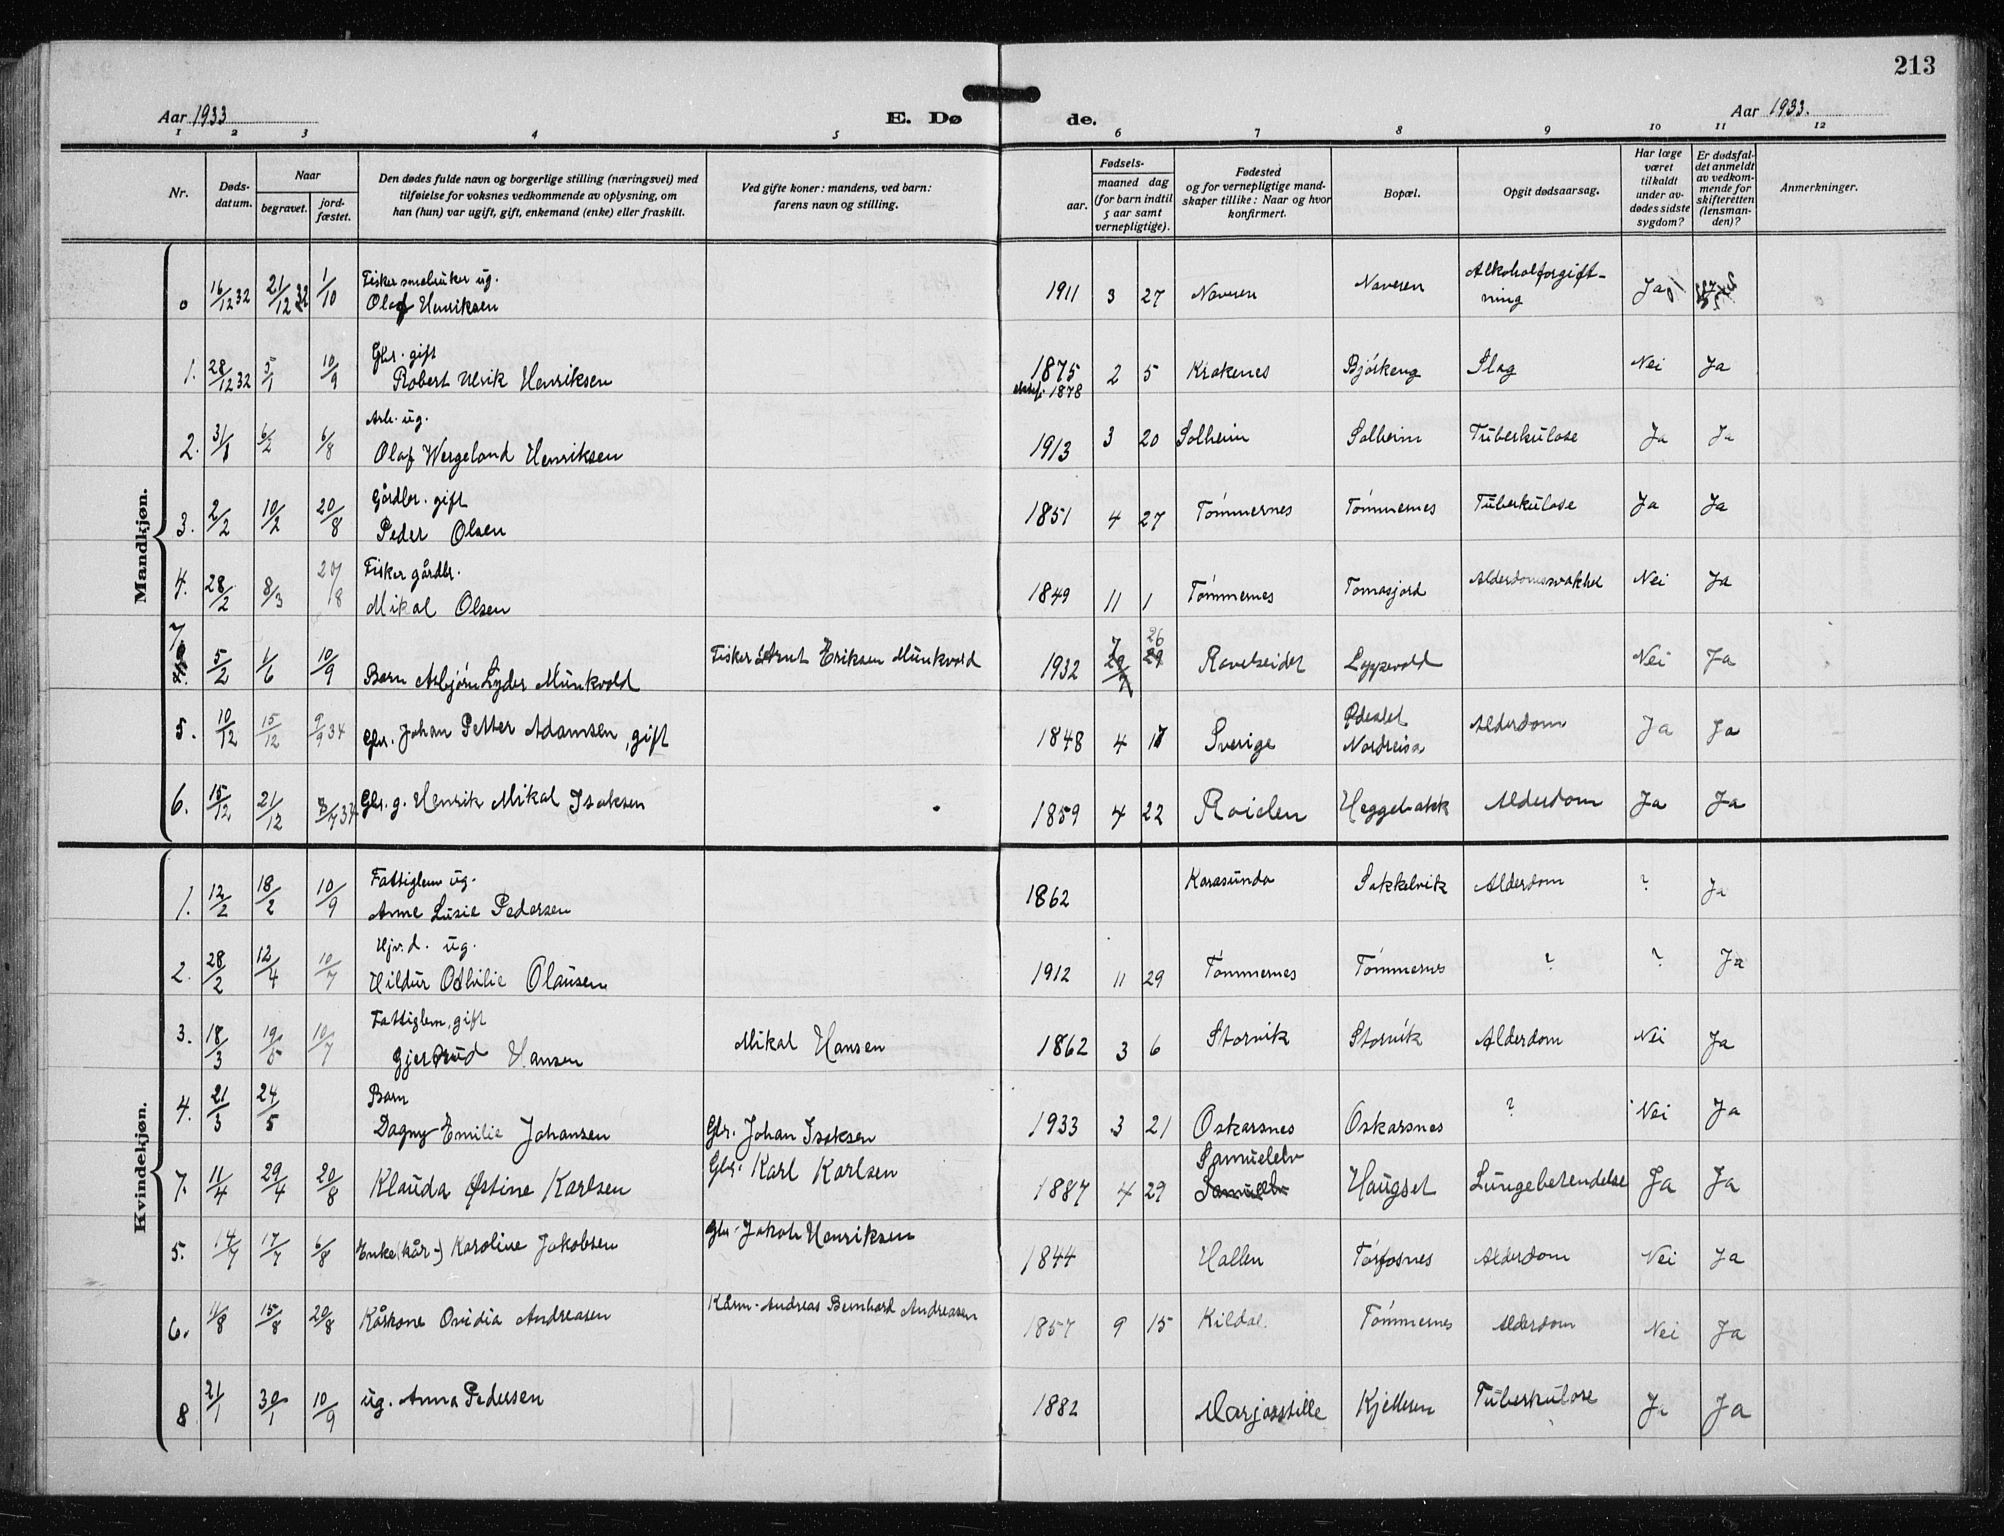 213
Aar 1933
E. Dø de.
Aar 1933.
1 2 3 4 5 6 7 8 9 10 11 12
Nr.
Døds-
datum.
Naar
begravet.
jord-
fæstet.
Den dødes fulde navn og borgerlige stilling (næringsvei) med
tilføielse for voksnes vedkommende av oplysning, om
han (hun) var ugift, gift, enkemand (enke) eller fraskilt.
Ved gifte koner: mandens, ved barn:
farens navn og stilling.
Fødsels-
aar.
maaned dag
(for barn indtil
5 aar samt
vernepligtige).
Fødested
og for vernepligtige mand-
skaper tillike: Naar og hvor
konfirmert.
Bopæl.
Opgit dødsaarsag.
Har læge
været
tilkaldt
under av-
dødes sidste
sygdom?
Er dødsfal-
det anmeldt
av vedkom-
mende for
skifteretten
(lensman-
den)?
Anmerkninger.
Mandkjøn.
Fisker småbruker ug.
0 16/12 32 21/12 32 1/10 Olaf Henriksen 1911 3 27 Naveren Naveren Alkoholforgift-
ning Ja
Gbr. gift
1. 28/12 32 5/1 10/9 Robert Ulrik Henriksen 1875 2 5 Krakenes Bjørkeng Slag Nei Ja
1878
Arb. ug.
2. 31/1 6/2 6/8 Olaf Wergeland Henriksen 1913 3 20 Solheim Solheim Tuberkulose Ja Ja
Gårdbr. gift
3. 2/2 10/2 20/8 Peder Olsen 1851 4 27 Tømmernes Tømmernes Tuberkulose Ja Ja
Fisker gårdbr.
4. 28/2 8/3 20/8 Mikal Olsen 1849 11 1 Tømmernes Tomasjord Alderdomssvakhet Nei Ja
7 26
7 5/2 1/6 10/9 Barn Asbjørn Lyder Munkvold Fisker Arnt Eriksen Munkvold 1932 29/7 29 Ravelseidet Lyppevold Nei Ja
5. 10/12 15/12 9/9 34 Gbr. Johan Petter Adamsen, gift 1848 4 17 Sverige Nordreisa Alderdom Ja Ja
6. 15/12 21/12 8/7 34 Gbr. g. Henrik Mikal Isaksen 1859 4 22 Roielen Heggebakk Alderdom Ja Ja
Kvindekjøn.
Fattiglem ug.
1. 12/2 18/2 10/9 Anne Lusie Pedersen 1862 Karasunda Sakkelvik Alderdom ? Ja
Hjv. d. ug.
2. 28/2 12/4 10/7 Hildur Othilie Olausen 1912 11 29 Tømmernes Tømmernes ? ? Ja
Fattiglem, gift
3. 18/3 19/5 10/7 Gjertrud Hansen Mikal Hansen 1862 3 6 Storvik Storvik Alderdom Nei Ja
Barn
4. 21/3 24/5 Dagny Emilie Johansen Gbr. Johan Isaksen 1933 3 21 Oskarsnes Oskarsnes ? Nei Ja
Samuelelv
7. 11/4 29/4 20/8 Klauda Østine Karlsen Gbr. Karl Karlsen 1887 4 29 Samuelelv Haugset Lungebetendelse Ja Ja
5. 14/7 17/7 6/8 Enke (kår-) Karoline Jakobsen Gbr. Jakob Henriksen 1844 Hallen Torfosnes Alderdom Nei Ja
6. 11/8 15/8 20/8 Kårkone Ovidia Andreasen Kårm. Andreas Bernhard Andreasen 1857 9 15 Kildal Tømmernes Alderdom Nei Ja
8 21/1 30/1 10/9 ug. Anna Pedersen 1882 Marjosstille Kjelleren Tuberkulose Ja Ja